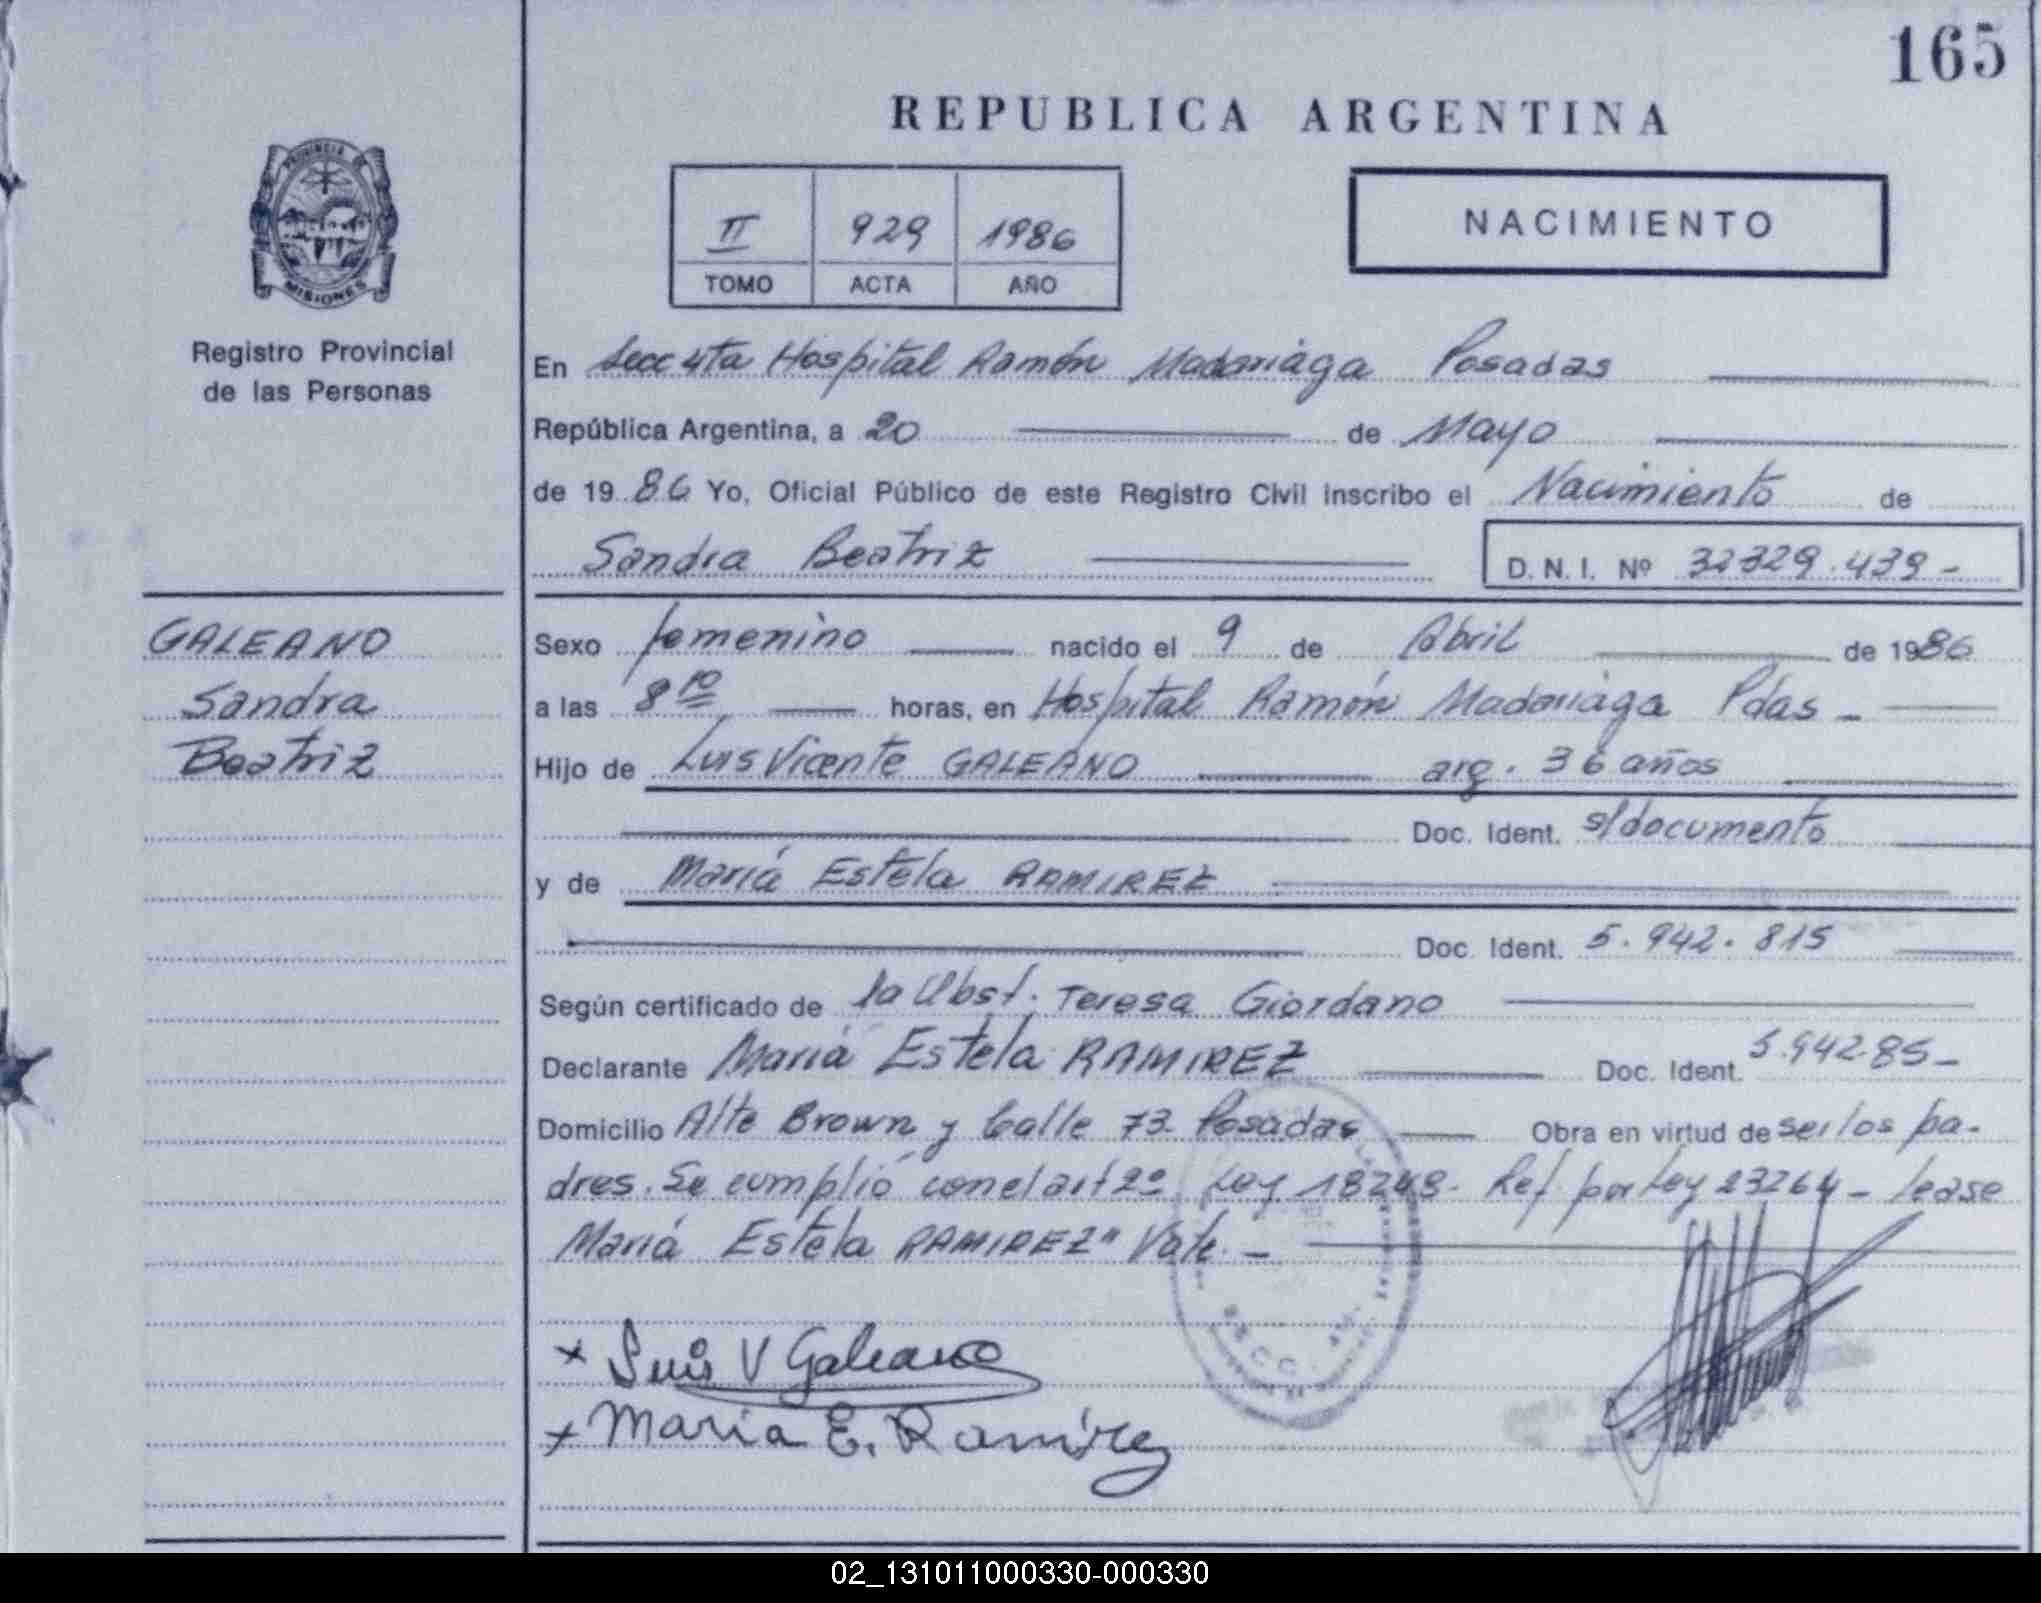 165
REPUBLICA ARGENTINA
PROVINCIA DE
MISIONES
Registro Provincial
de las Personas
II 929 1986
TOMO ACTA AÑO
NACIMIENTO
En Secc 4ta Hospital Ramón Madariaga Posadas
República Argentina, a 20 de Mayo
de 1986 Yo, Oficial Público de este Registro Civil inscribo el Nacimiento de
Sandra Beatriz D.N.I. Nº 32329.439-
GALEANO
Sandra
Beatriz
Sexo femenino nacido el 9 de Abril de 1986
a las 8 10 horas, en Hospital Ramón Madariaga Pdas -
Hijo de Luis Vicente GALEANO arg. 36 años
Doc. Ident. s/documento
y de María Estela RAMIREZ
Doc. Ident. 5.942.815
Según certificado de la Obst. Teresa Giordano
Declarante María Estela RAMIREZ Doc. Ident. 5.942.85-
Domicilio Alte Brown y Calle 73. Posadas Obra en virtud de ser los pa-
dres. Se cumplió con el art 2º Ley 18248. Ref por Ley 23264- lease
María Estela RAMIREZ" Vale. -
x Luis V Galeano
x Maria E. Ramirez
02_131011000330-000330